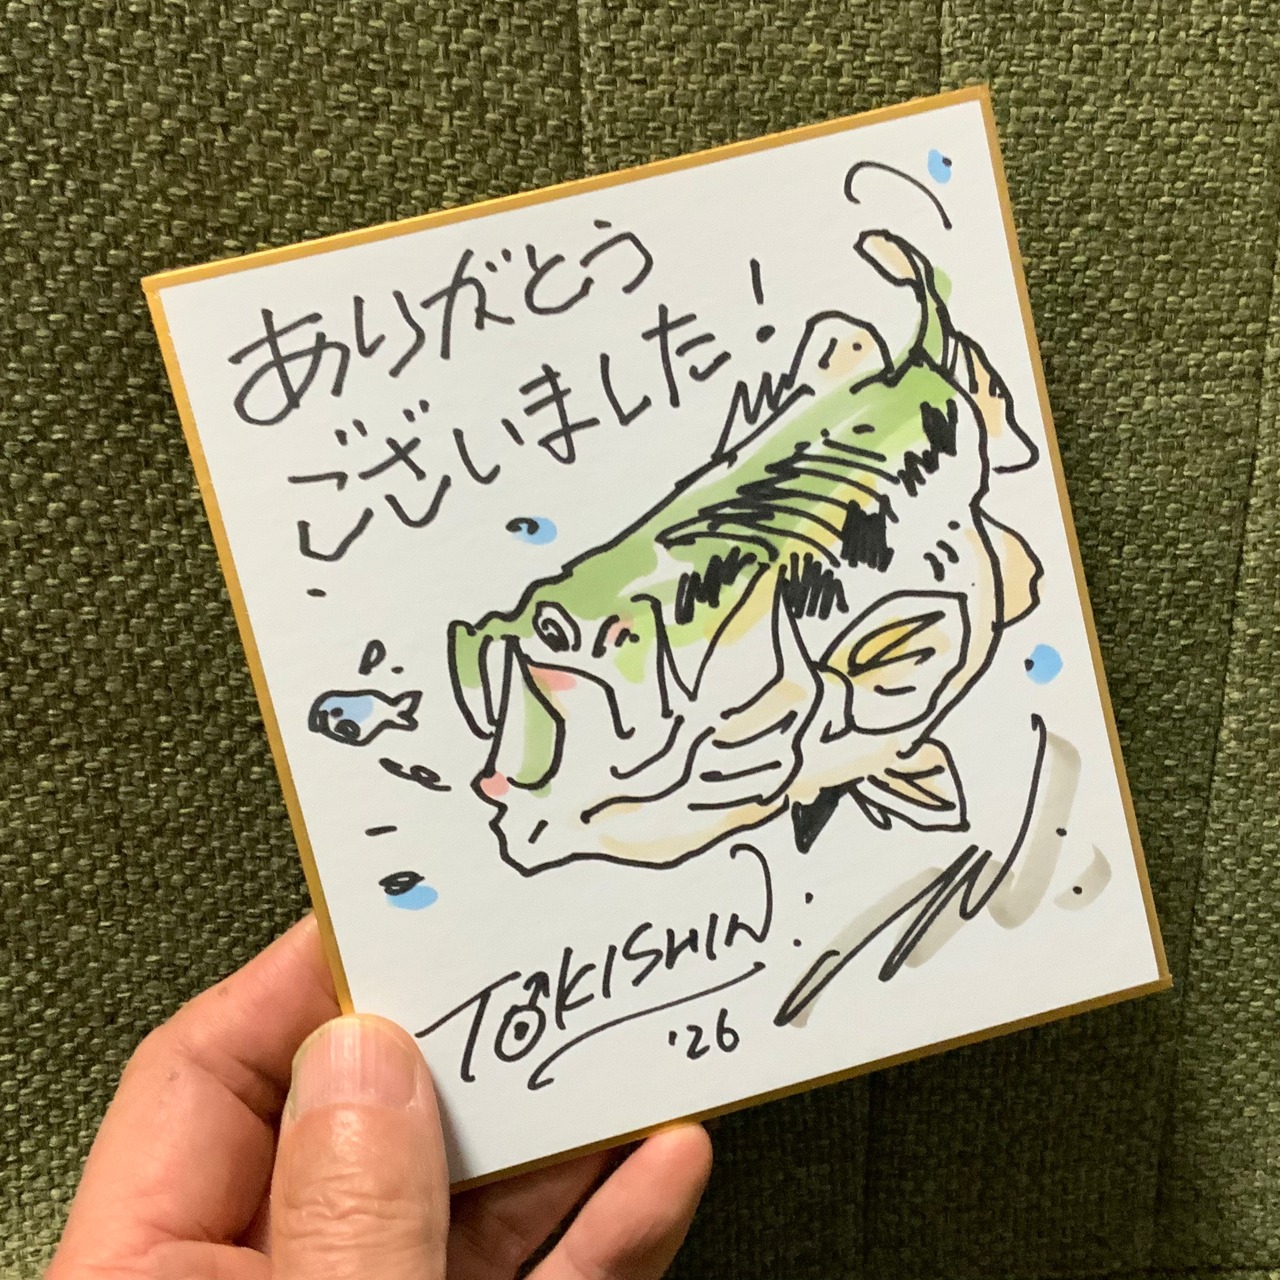 ありがとう
ございました!
TOKISHIN
'26